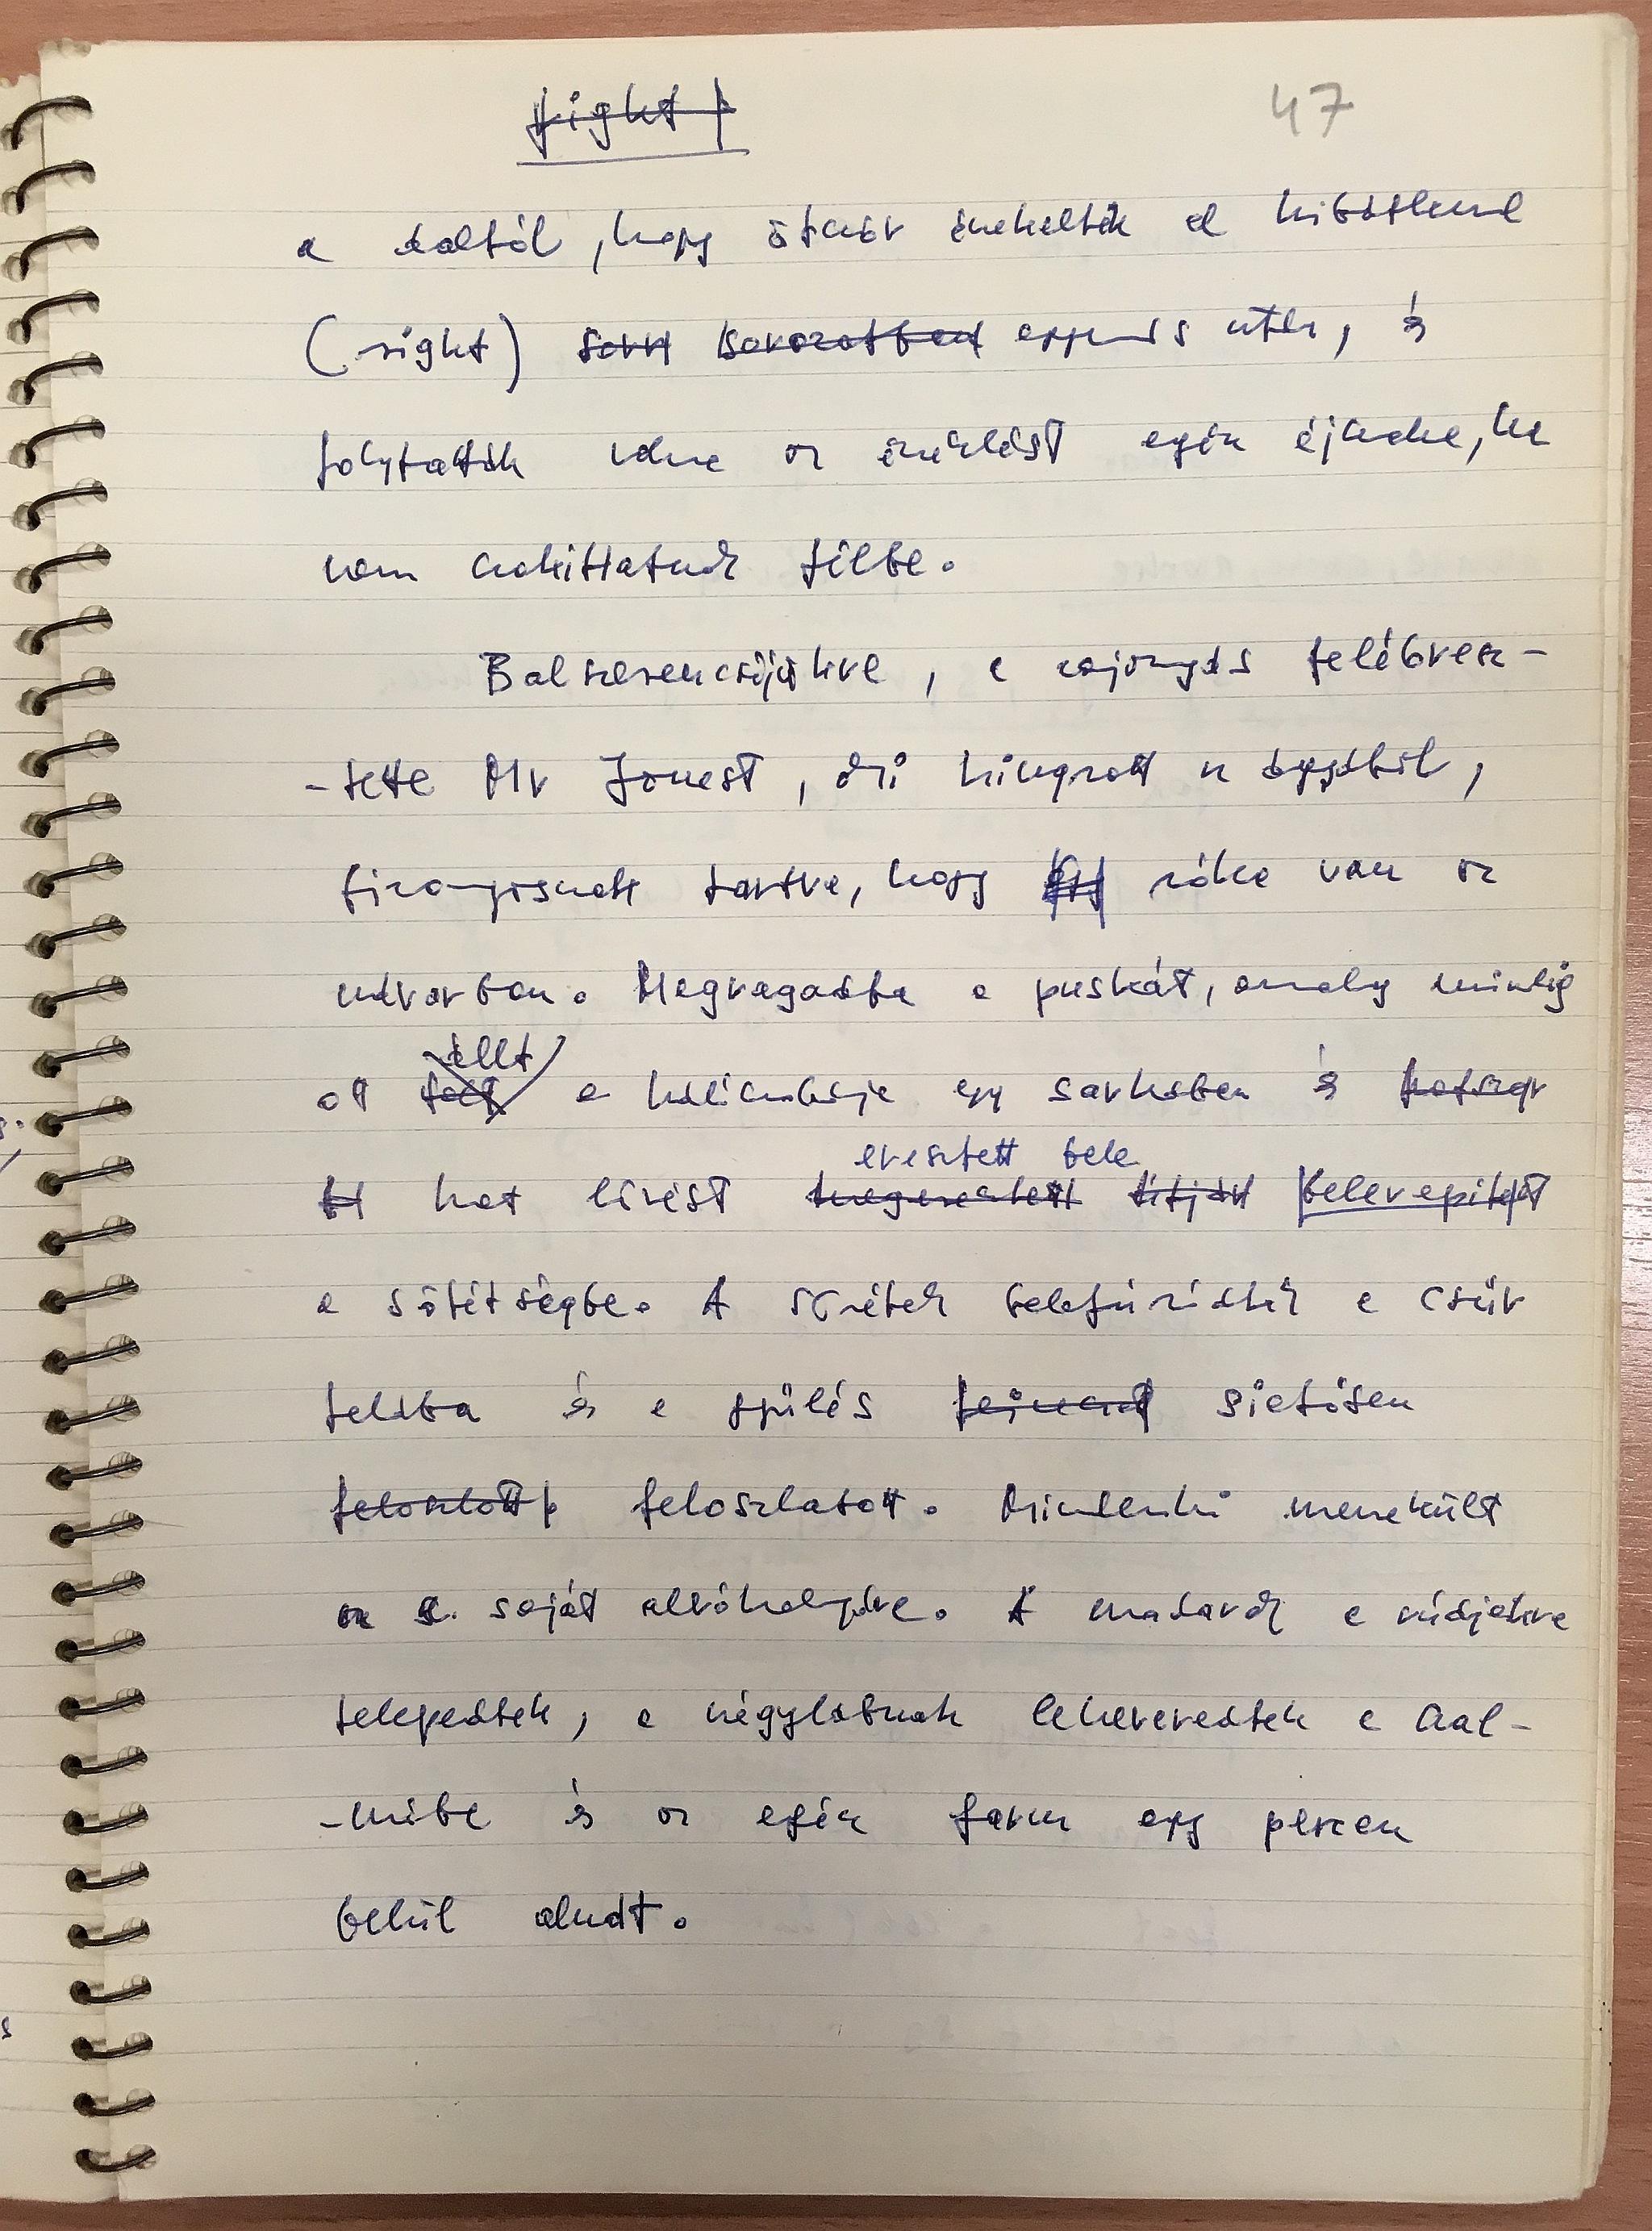 right
47
a daltól, hogy ötször énekelték el hibátlanul
(right) egymás után, és
folytatták volna az éneklést egész éjszaka, ha
nem szakíttatnak félbe.
Balszerencséjükre, a zajongás felébresz-
-tette Mr Jonest, aki kiugrott az ágyából,
bizonyosnak tartva, hogy róka van az
udvarban. Megragadta a puskát, amely mindig
állt
ott a hálószobája egy sarkában és
eresztett bele
hat lövést belerepített
a sötétségbe. A sörétek belefúródtak a csűr
falába és a gyűlés sietősen
feloszlott feloszlatott. Mindenki menekült
a saját alvóhelyére. A madarak a rúdjaikra
telepedtek, a négylábúak leheveredtek a szal-
-mába és az egész farm egy percen
belül aludt.